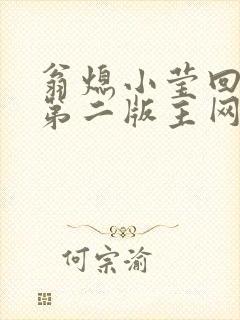 翁熄小莹回
第二版主网
何宗渝